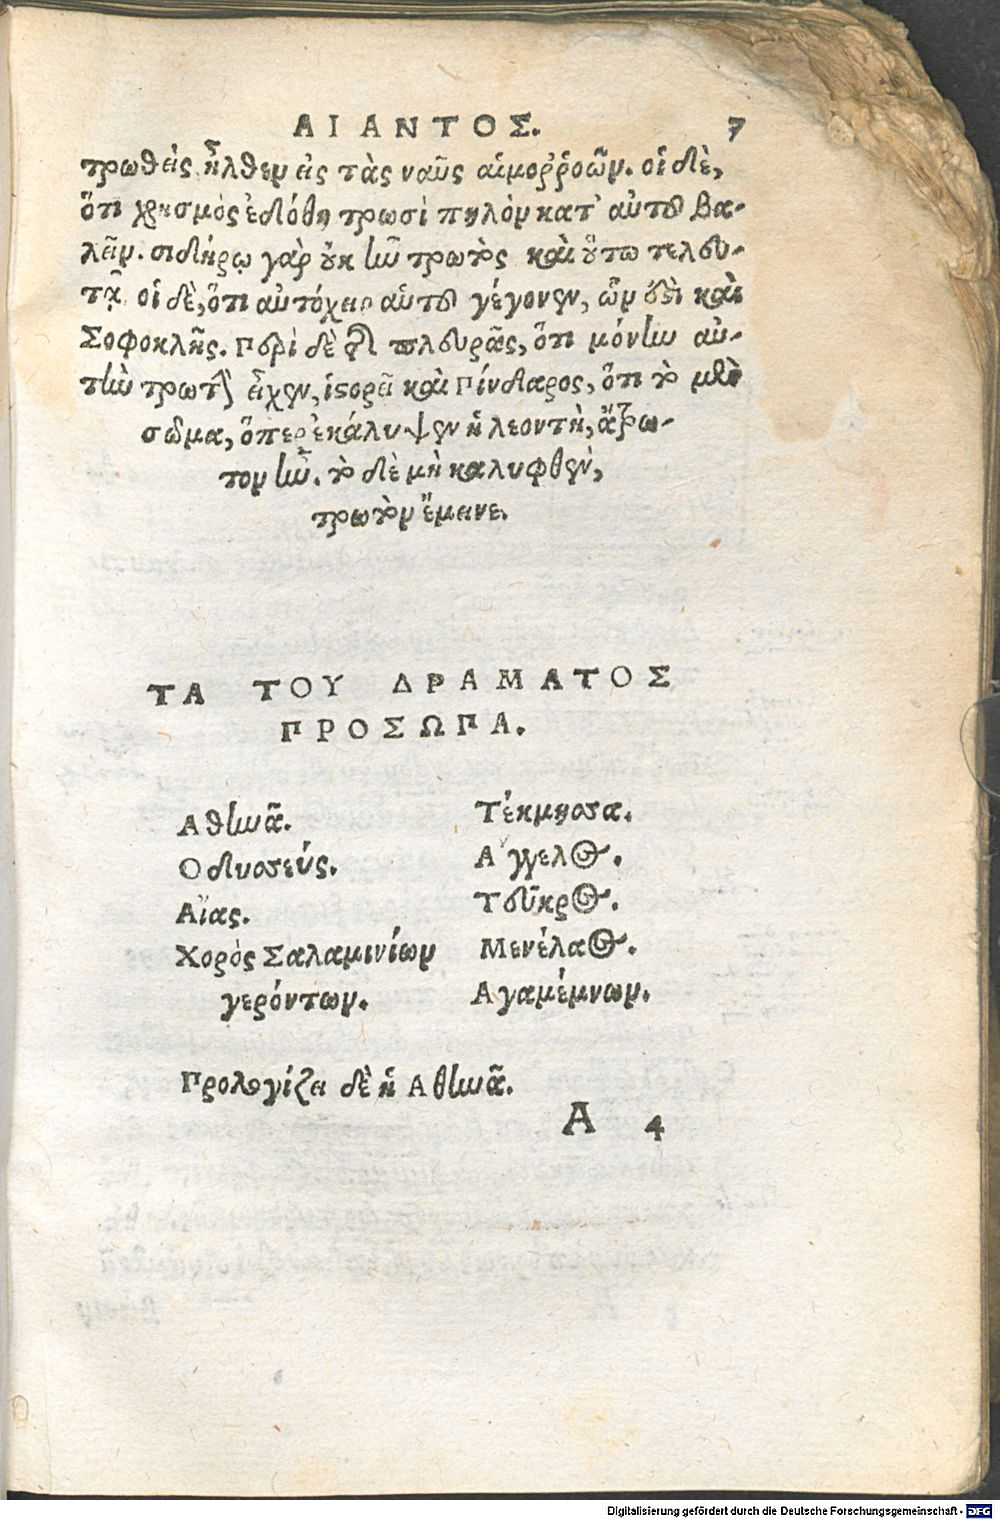 ΑΙΑΝΤΟΣ. 7
τρωθεὶς ἦλθεν εἰς τὰς ναῦς αἱμοῤῥοῶν. οἱ δὲ,
ὅτι χρησμὸς ἐδόθη τρωσὶ πηλὸν κατ' αὐτοῦ βα-
λεῖν. σιδήρῳ γὰρ οὐκ ἦν τρωτὸς καὶ οὕτω τελευ-
τᾷ. οἱ δὲ, ὅτι αὐτόχειρ αὑτοῦ γέγονεν, ὧν ἐστὶ καὶ
Σοφοκλῆς. Περὶ δὲ τῆς πλευρᾶς, ὅτι μόνην αὐ-
τὴν τρωτὴν εἶχεν, ἱστορεῖ καὶ Πίνδαρος, ὅτι τὸ μὲν
σῶμα, ὅπερ ἐκάλυψεν ἡ λεοντὴ, ἄτρω-
τον ἦν. τὸ δὲ μὴ καλυφθὲν,
τρωτὸν ἔμεινε.
ΤΑ ΤΟΥ ΔΡΑΜΑΤΟΣ
ΠΡΟΣΩΠΑ.
Αθηνᾶ.
Οδυσσεύς.
Αἴας.
Χορὸς Σαλαμινίων
γερόντων.
Τέκμησσα.
Αγγελος.
Τεῦκρος.
Μενέλαος.
Αγαμέμνων.
Προλογίζει δὲ ἡ Αθηνᾶ.
A 4
Digitalisierung gefördert durch die Deutsche Forschungsgemeinschaft - DFG